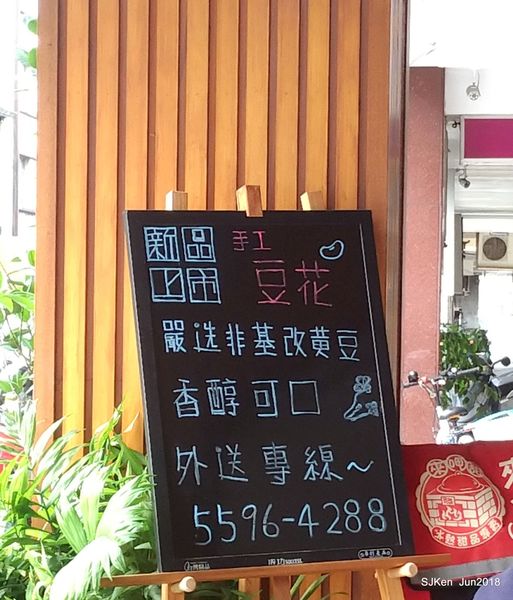 新品 手工
上市 豆花
嚴选非基改黄豆
香醇可口
外送專線～
5596-4288
SJKen Jun2018